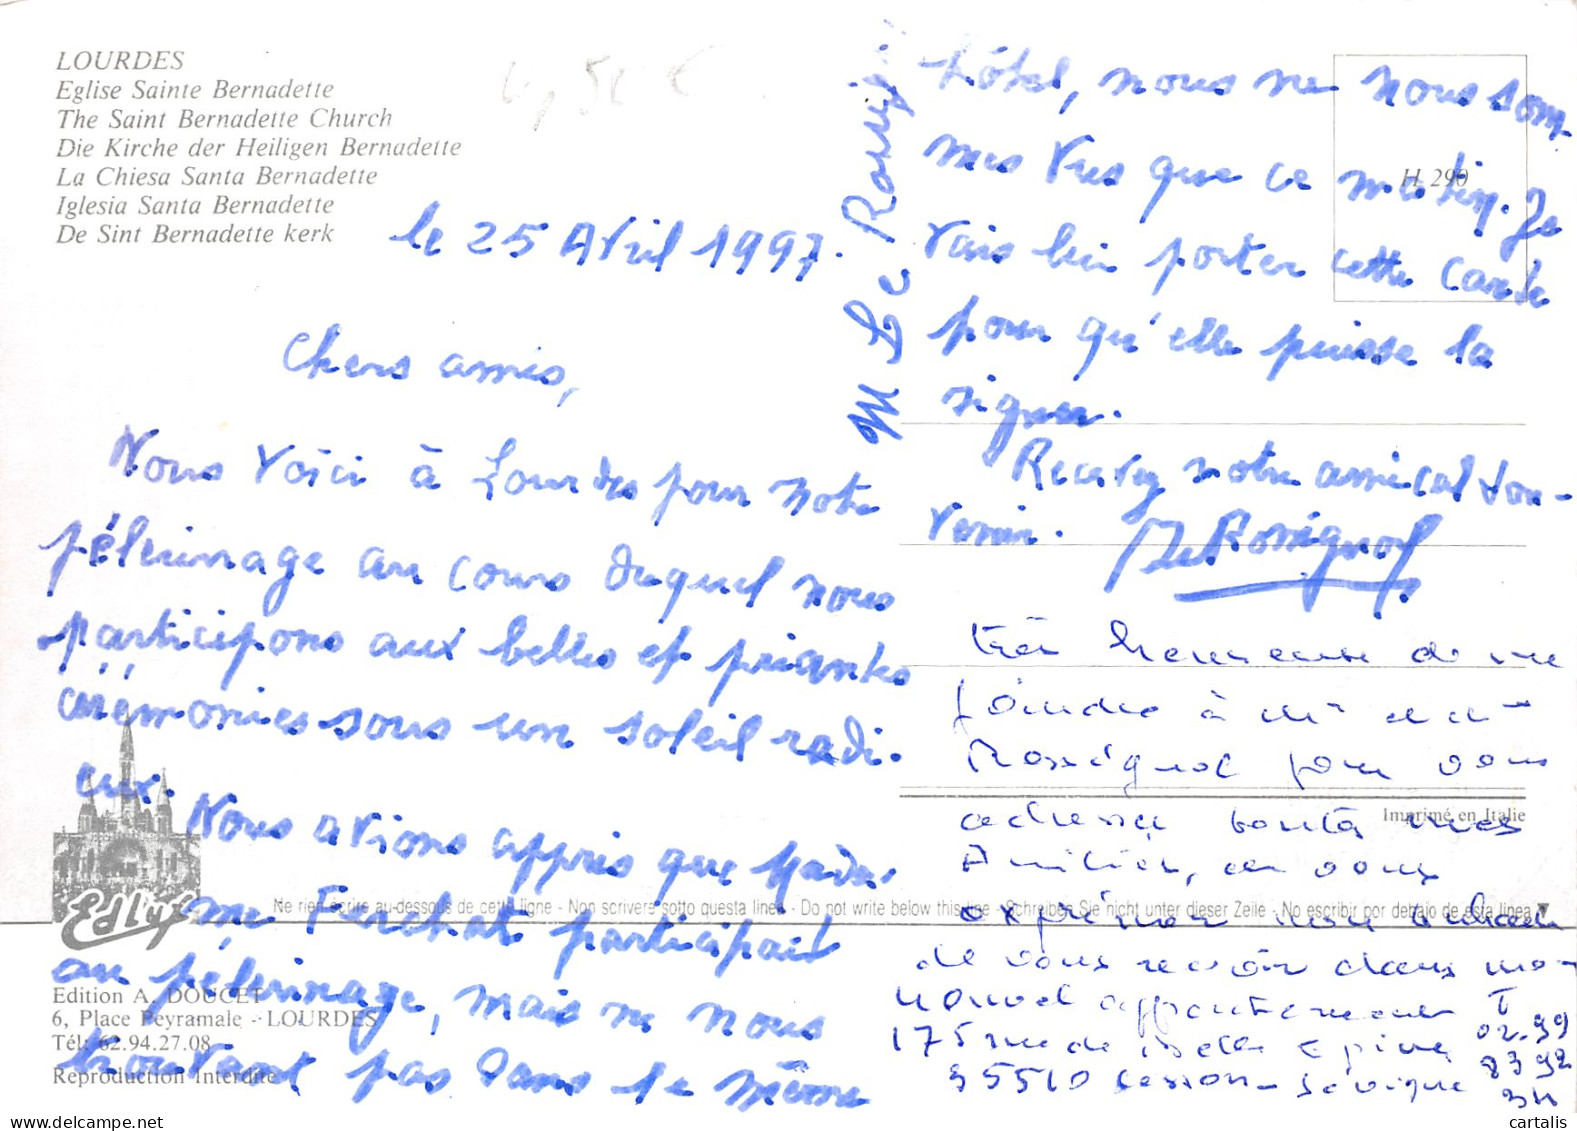 LOURDES
Eglise Sainte Bernadette
The Saint Bernadette Church
Die Kirche der Heiligen Bernadette
La Chiesa Santa Bernadette
Iglesia Santa Bernadette
De Sint Bernadette kerk
le 25 Avril 1997.
Chers amis,
Nous voici à Lourdes pour notre
pélerinage au cours duquel nous
participons aux belles et priantes
cérémonies sous un soleil radi-
eux.
Nous avions appris que Mada-
me Ferchat participait
au pélerinage, mais ne nous
trouvant pas dans le même
hôtel, nous ne nous som-
mes vus que ce matin. Je
vais lui porter cette carte
pour qu'elle puisse la
signer.
Recevez notre amical sou-
venir.
Le Rossignol
M Le Rossig
H 290
très heureuse de me
joindre à Mr et Mme
Rossignol pour vous
adresser toutes mes
Amitiés, et vous
exprimer mon
de vous revoir dans mon
nouvel appartement
175 rue de Belle Epine
35510 Cesson-Sévigné
T
02.99
83 92
Imprimé en Italie
Edlux
Ne rien écrire au-dessous de cette ligne - Non scrivere sotto questa linea - Do not write below this line - Schreiben Sie nicht unter dieser Zeile - No escribir por debajo de esta linea
Edition A. DOUCET
6, Place Peyramale - LOURDES
Tél: 62.94.27.08
Reproduction Interdite
cartalis